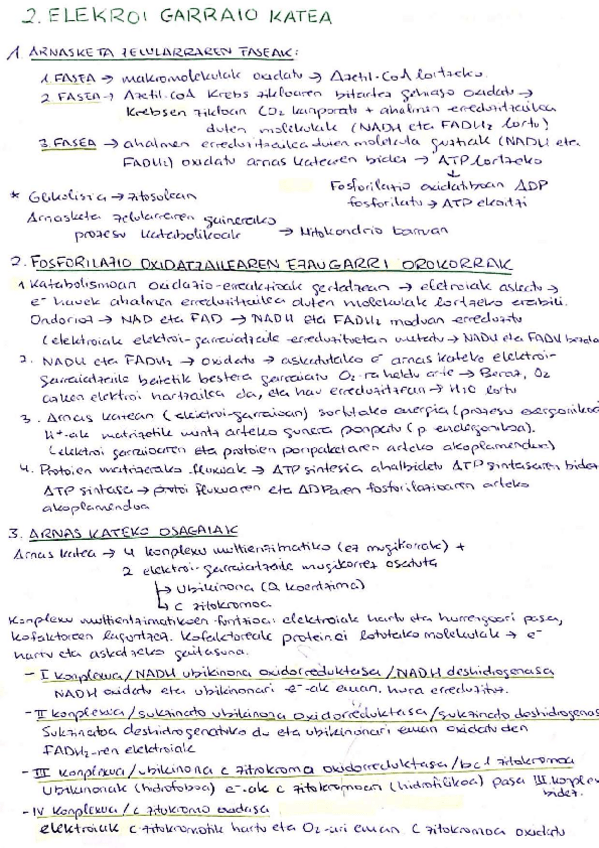 2. ELEKROI GARRAIO KATEA
1. ARNASKETA ZELULARRAREN FASEAK:
1. FASEA → makromolekulak oxidatu → Azetil-CoA lortzeko.
2 FASEA → Azetil-CoA Krebs zikloaren bitartez gehiago oxidatu →
Krebsen zikloan CO2 kanporatu + ahalmen erreduzitzailea
duten molekulak (NADH eta FADH2 lortu)
3. FASEA → ahalmen erreduzitzailea duten molekula guztiak (NADH eta
FADH2) oxidatu arnas katearen bidez → ATP lortzeko
↓
Fosforilazio oxidatiboan ADP
fosforilatu → ATP ekoitzi
* Glikolisia → zitosolean
Arnasketa zelularraren gainerako
prozesu katabolikoak → Mitokondrio barruan
2. FOSFORILAZIO OXIDATZAILEAREN EZAUGARRI OROKORRAK
1 Katabolismoan oxidazio-erreakzioak gertatzean → eletroiak askatu →
e- hauek ahalmen erreduzitzailea duten molekulak lortzeko erabili.
Ondorioz → NAD eta FAD → NADH eta FADH2 moduan erreduzitu
(elektroiak elektroi-garraiatzaile erreduzituetan metatu → NADH eta FADH
2. NADH eta FADH2 → oxidatu → askatutako e- arnas kateko elektroi-
garraiatzaile batetik bestera garraiatu O2-ra heldu arte → Beraz, O2
azken elektroi hartzailea da, eta hau erreduzitzean → H2O lortu
3. Arnas katean (elektroi-garraioan) sortutako energia (prozesu exergonikoa
H+-ak matrizetik mintz arteko gunera ponpatu (p. endergonikoa).
(elektroi garraioaren eta protoien ponpaketaren arteko akoplamendua)
4. Protoien matrizerako fluxuak → ATP sintesia ahalbidetu ATP sintasaren bidez
ATP sintasa → protoi fluxuaren eta ADParen fosforilazioaren arteko
akoplamendua
3. ARNAS KATEKO OSAGAIAK
Arnas katea → 4 konplexu multienzimatiko (ez mugikorrak) +
2 elektroi-garraiatzaile mugikorrez osatuta
↳ Ubikinona (Q koentzima)
↳ C zitokromoa
Konplexu multientzimatikoen funtzioa: elektroiak hartu eta hurrengoari pasa,
kofaktoreen laguntzaz. Kofaktoreak proteinei lotutako molekulak → e-
hartu eta askatzeko gaitasuna.
- I konplexua/NADH ubikinona oxidorreduktasa/NADH deshidrogenasa
NADH oxidatu eta ubikinonari e-ak eman, hura erreduzituz.
- II konplexua/sukzinato ubikinona oxidorreduktasa/sukzinato deshidrogenas
Sukzinatoa deshidrogenatuko du eta ubikinonari eman oxidatu den
FADH2-ren elektroiak
- III konplexua/ubikinona c zitokroma oxidorreduktasa/bc1 zitokromoa
Ubikinonak (hidrofoboa) e-ak c zitokromoari (hidrofilikoa) pasa III. konplex
bidez.
- IV Konplexua/c zitokromo oxidasa
elektroiak c-zitokromotik hartu eta O2-ari eman C zitokromoa oxidatu